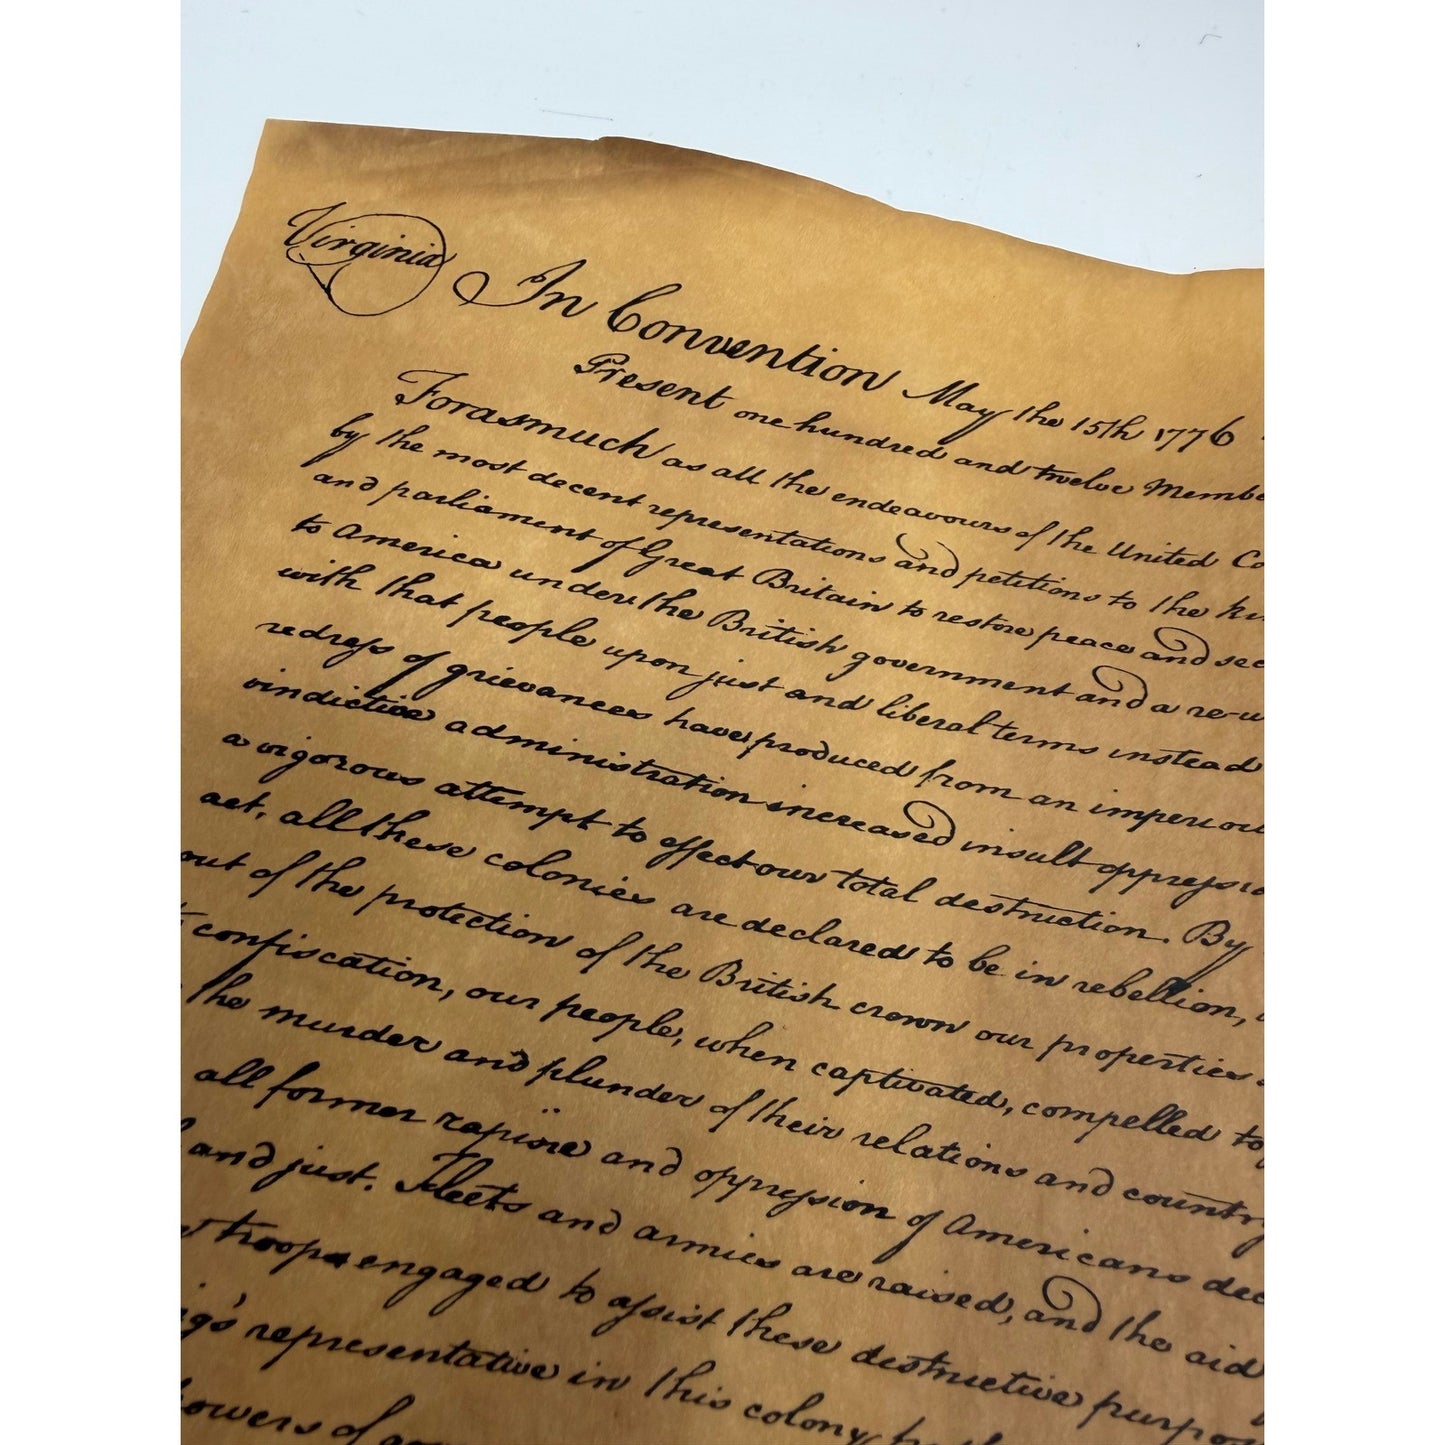 Virginia
In Convention May the 15th 1776
Present one hundred and twelve Membe
Forasmuch as all the endeavours of the United Co
by the most decent representations and petitions to the ki
and parliament of Great Britain to restore peace and sec
to America under the British government and a re-u
with that people upon just and liberal terms instead
redress of grievances have produced from an imperiou
vindictive administration increased insult oppressio
a vigorous attempt to effect our total destruction. By
act, all these colonies are declared to be in rebellion,
out of the protection of the British crown our properties
confiscation, our people, when captivated, compelled to
the murder and plunder of their relations and country
all former rapine and oppression of Americans dec
and just. Fleets and armies are raised, and the aid
troops engaged to assist these destructive purpo
ig's representative in this colony
owers of